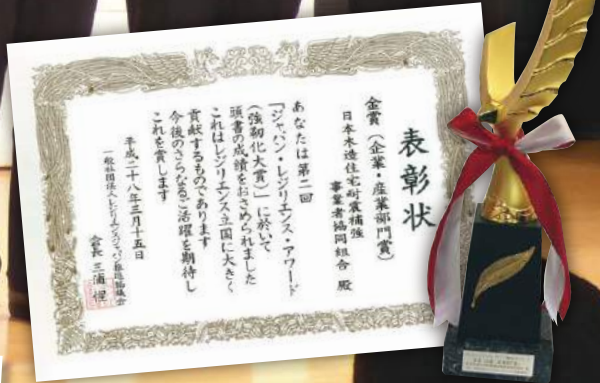 表彰状
金賞（企業・産業部門賞）
日本木造住宅耐震補強
事業者協同組合 殿
あなたは第二回
「ジャパン・レジリエンス・アワード
（強靭化大賞）」に於いて
頭書の成績をおさめられました
これはレジリエンス立国に大きく
貢献するものであります
今後のさらなるご活躍を期待し
これを賞します
平成二十八年三月十五日
一般社団法人レジリエンスジャパン推進協議会
会長 三浦惺